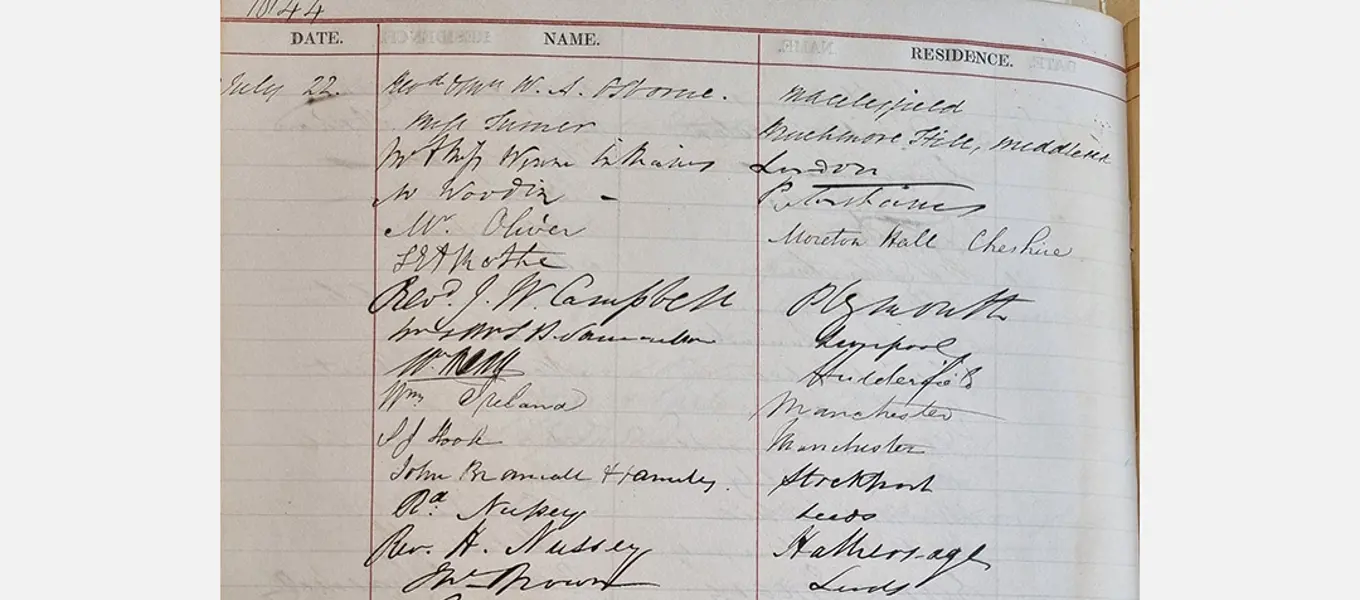 1844
DATE. NAME. RESIDENCE.
July 22. Revd & Mrs W. A. Osborne. Macclesfield
Miss Turner Muchmore Hill, Middlesex
Mr & Miss London
W Woodin -
Mr. Oliver Moreton Hall Cheshire
Revd. J. W. Campbell Plymouth
Mr & Mrs Liverpool
Wm Huddersfield
Wm Ireland Manchester
S J Hook Manchester
John Bramall & Family. Stockport
Rd Nussey Leeds
Rev. H. Nussey Hathersage
Jno Brown Leeds